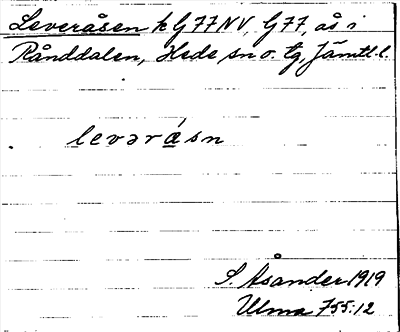 Leveråsen k G77NV, G77, ås i
Rånddalen, Hede sn o. tg, Jämtl. l.
levərásn
S. Åsander 1919
Ulma 755:12